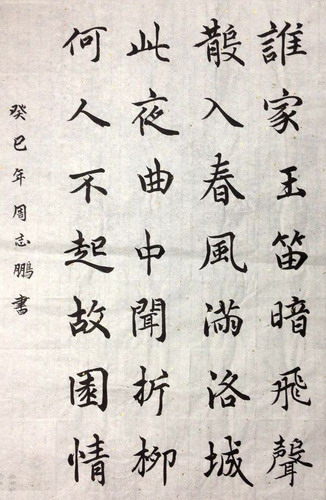 誰家玉笛暗飛聲
散入春風滿洛城
此夜曲中聞折柳
何人不起故園情
癸巳年周志鵬書